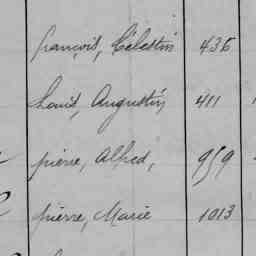 françois, Célestin 436
Louis, Augustin, 411
pierre, Alfred, 959
pierre, Marie 1013